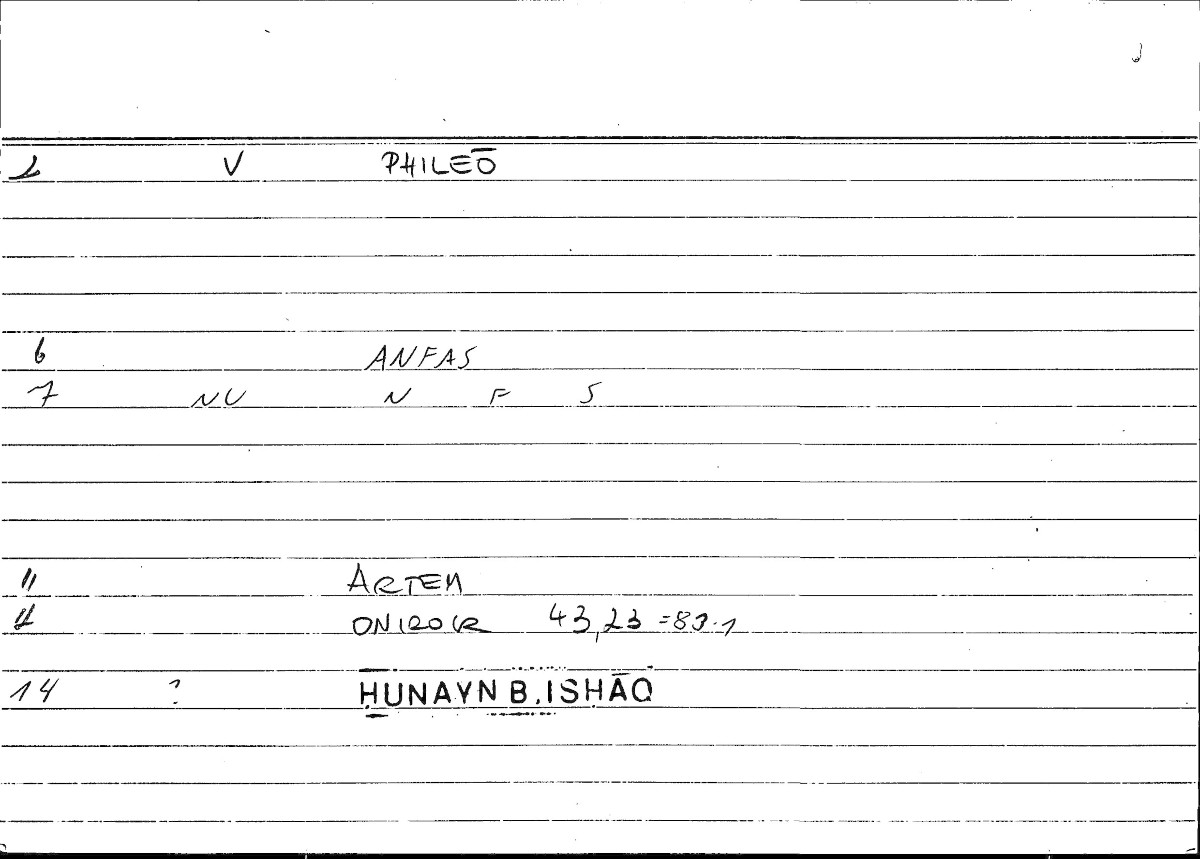 2 V PHILEŌ
6 ANFAS
7 NU N F S
11 ARTEM
12 ONIROCR 43,23 = 83.1
14 ? ḤUNAYN B. ISḤĀQ